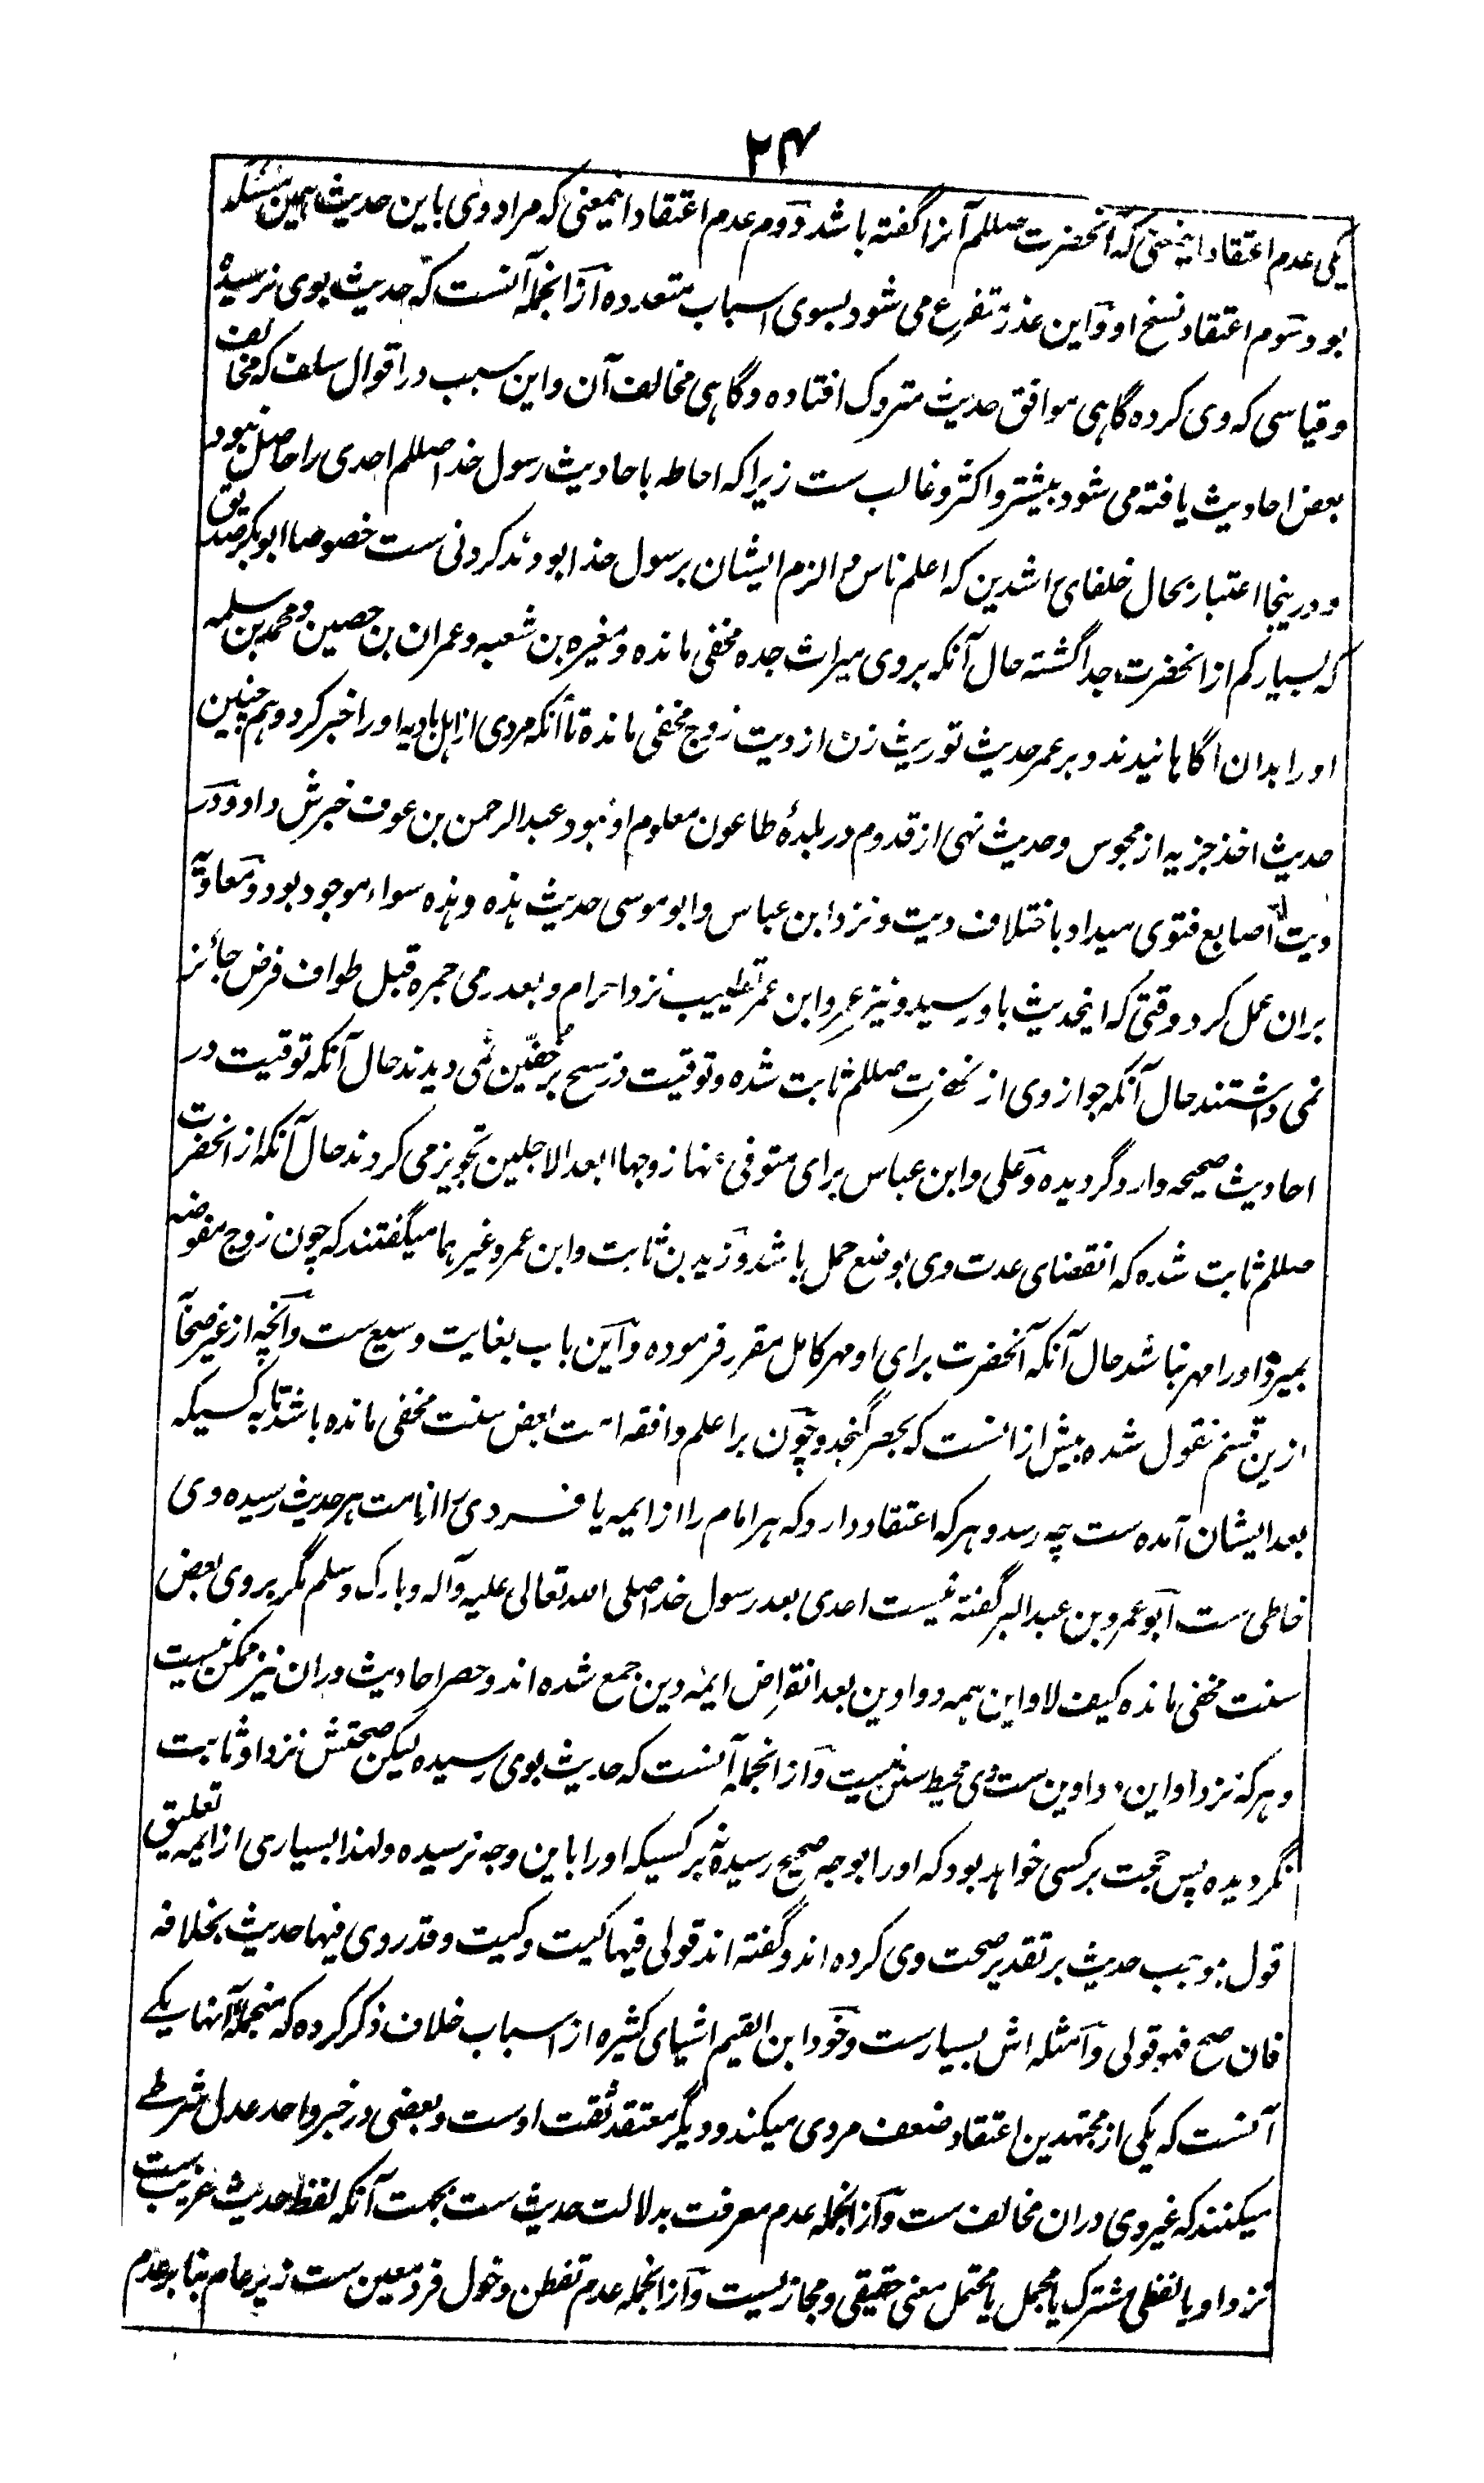 ۲۴
یکی عدم اعتقاد اینمعنی که آنحضرت صللم آنرا گفته باشد دوم عدم اعتقاد اینمعنی که مراد وی باین حدیث همین مسئله
بود سوم اعتقاد نسخ او و این عذر متفرع می شود بسوی اسباب متعدده ازانجمله آنست که حدیث بوی نرسیده
و قیاسی که وی کرده گاهی موافق حدیث متروک افتاده و گاهی مخالف آن و این سبب در اقوال سلف که مخالف
بعض احادیث یافته می شود بیشتر و اکثر و غالب ست زیرا که احاطه باحادیث رسول خدا صللم احدی را حاصل نبود
و درینجا اعتبار بحال خلفای راشدین که اعلم ناس و الزم ایشان برسول خدا بودند کردنی ست خصوصا ابوبکر صدیق
که بسیار کم از انحضرت جدا گشته حال آنکه بروی میراث جده مخفی مانده و مغیره بن شعبه و عمران بن حصین و محمد بن سلمه
او را بدان اگاهانیدند و بر عمر حدیث توریث زن از دیت زوج مخفی مانده تا آنکه مردی از اهل بادیه او را خبر کرد و هم چنین
حدیث اخذ جزیه از مجوس و حدیث نهی از قدوم در بلدۀ طاعون معلوم او نبود عبد الرحمن بن عوف خبرش داد و در
دیت اصابع فتوی میداد باختلاف دیت و نزد ابن عباس و ابو موسی حدیث هذه و هذه سواء موجود بود و معاویه
بران عمل کرد وقتی که اینحدیث باو رسید و نیز عمر و ابن عمر تطییب نزد احرام و بعد رمی جمره قبل طواف فرض جائز
نمی داشتند حال آنکه جواز وی از آنحضرت صللم ثابت شده و توقیت در مسح بر خفین نمی دیدند حال آنکه توقیت در
احادیث صحیحه وارد گردیده و علی و ابن عباس برای متوفی عنها زوجها ابعد الاجلین تجویز می کردند حال آنکه از انحضرت
صللم ثابت شده که انقضای عدت وی بوضع حمل باشد و زید بن ثابت و ابن عمر و غیرهما میگفتند که چون زوج مفوضه
بمیرد او را مهر نباشد حال آنکه آنحضرت برای او مهر کامل مقرر فرموده و این باب بغایت وسیع ست و آنچه از غیر صحابه
ازین قسم منقول شده بیش ازانست که بحصر گنجد و چون بر اعلم و افقه امت بعض سنت مخفی مانده باشد تا به کسیکه
بعد ایشان آمده ست چه رسد و هر که اعتقاد دارد که هر امام را از ایمه یا فردی را از امت هر حدیث رسیده وی
خاطی ست ابو عمرو بن عبد البر گفته نیست احدی بعد رسول خدا صلی الله تعالی علیه و آله و بارک و سلم مگر بروی بعض
سنت مخفی مانده کیف لا و این همه دواوین بعد انقراض ایمه دین جمع شده اند و حصر احادیث دران نیز ممکن نیست
و هر که نزد او این دواوین ست وی محیط سنن نیست و ازانجمله آنست که حدیث بوی رسیده لیکن صحتش نزد او ثابت
نگردیده پس حجت بر کسی خواهد بود که او را بوجه صحیح رسیده نه بر کسیکه او را باین وجه نرسیده و لهذا بسیاری از ایمه تعلیق
قول بموجب حدیث بر تقدیر صحت وی کرده اند و گفته اند قولی فیها کیت و کیت و قد روی فیها حدیث بخلافه
فان صح فهو قولی و امثله اش بسیارست و خود ابن القیم اشیای کثیره از اسباب خلاف ذکر کرده که منجمله آنها یکے
آنست که یکی از مجتهدین اعتقاد ضعف مردی میکند و دیگر معتقد ثقت اوست و بعضی در خبر واحد عدل شرطے
میکنند که غیر وی دران مخالف ست و ازانجمله عدم معرفت بدلالت حدیث ست بجهت آنکه لفظ حدیث غریب ست
نزد او یا لفظی مشترک یا مجمل یا محتمل معنی حقیقی و مجازیست و ازانجمله عدم تفطن دخول فرد معین ست زیر عام بنا بر عدم